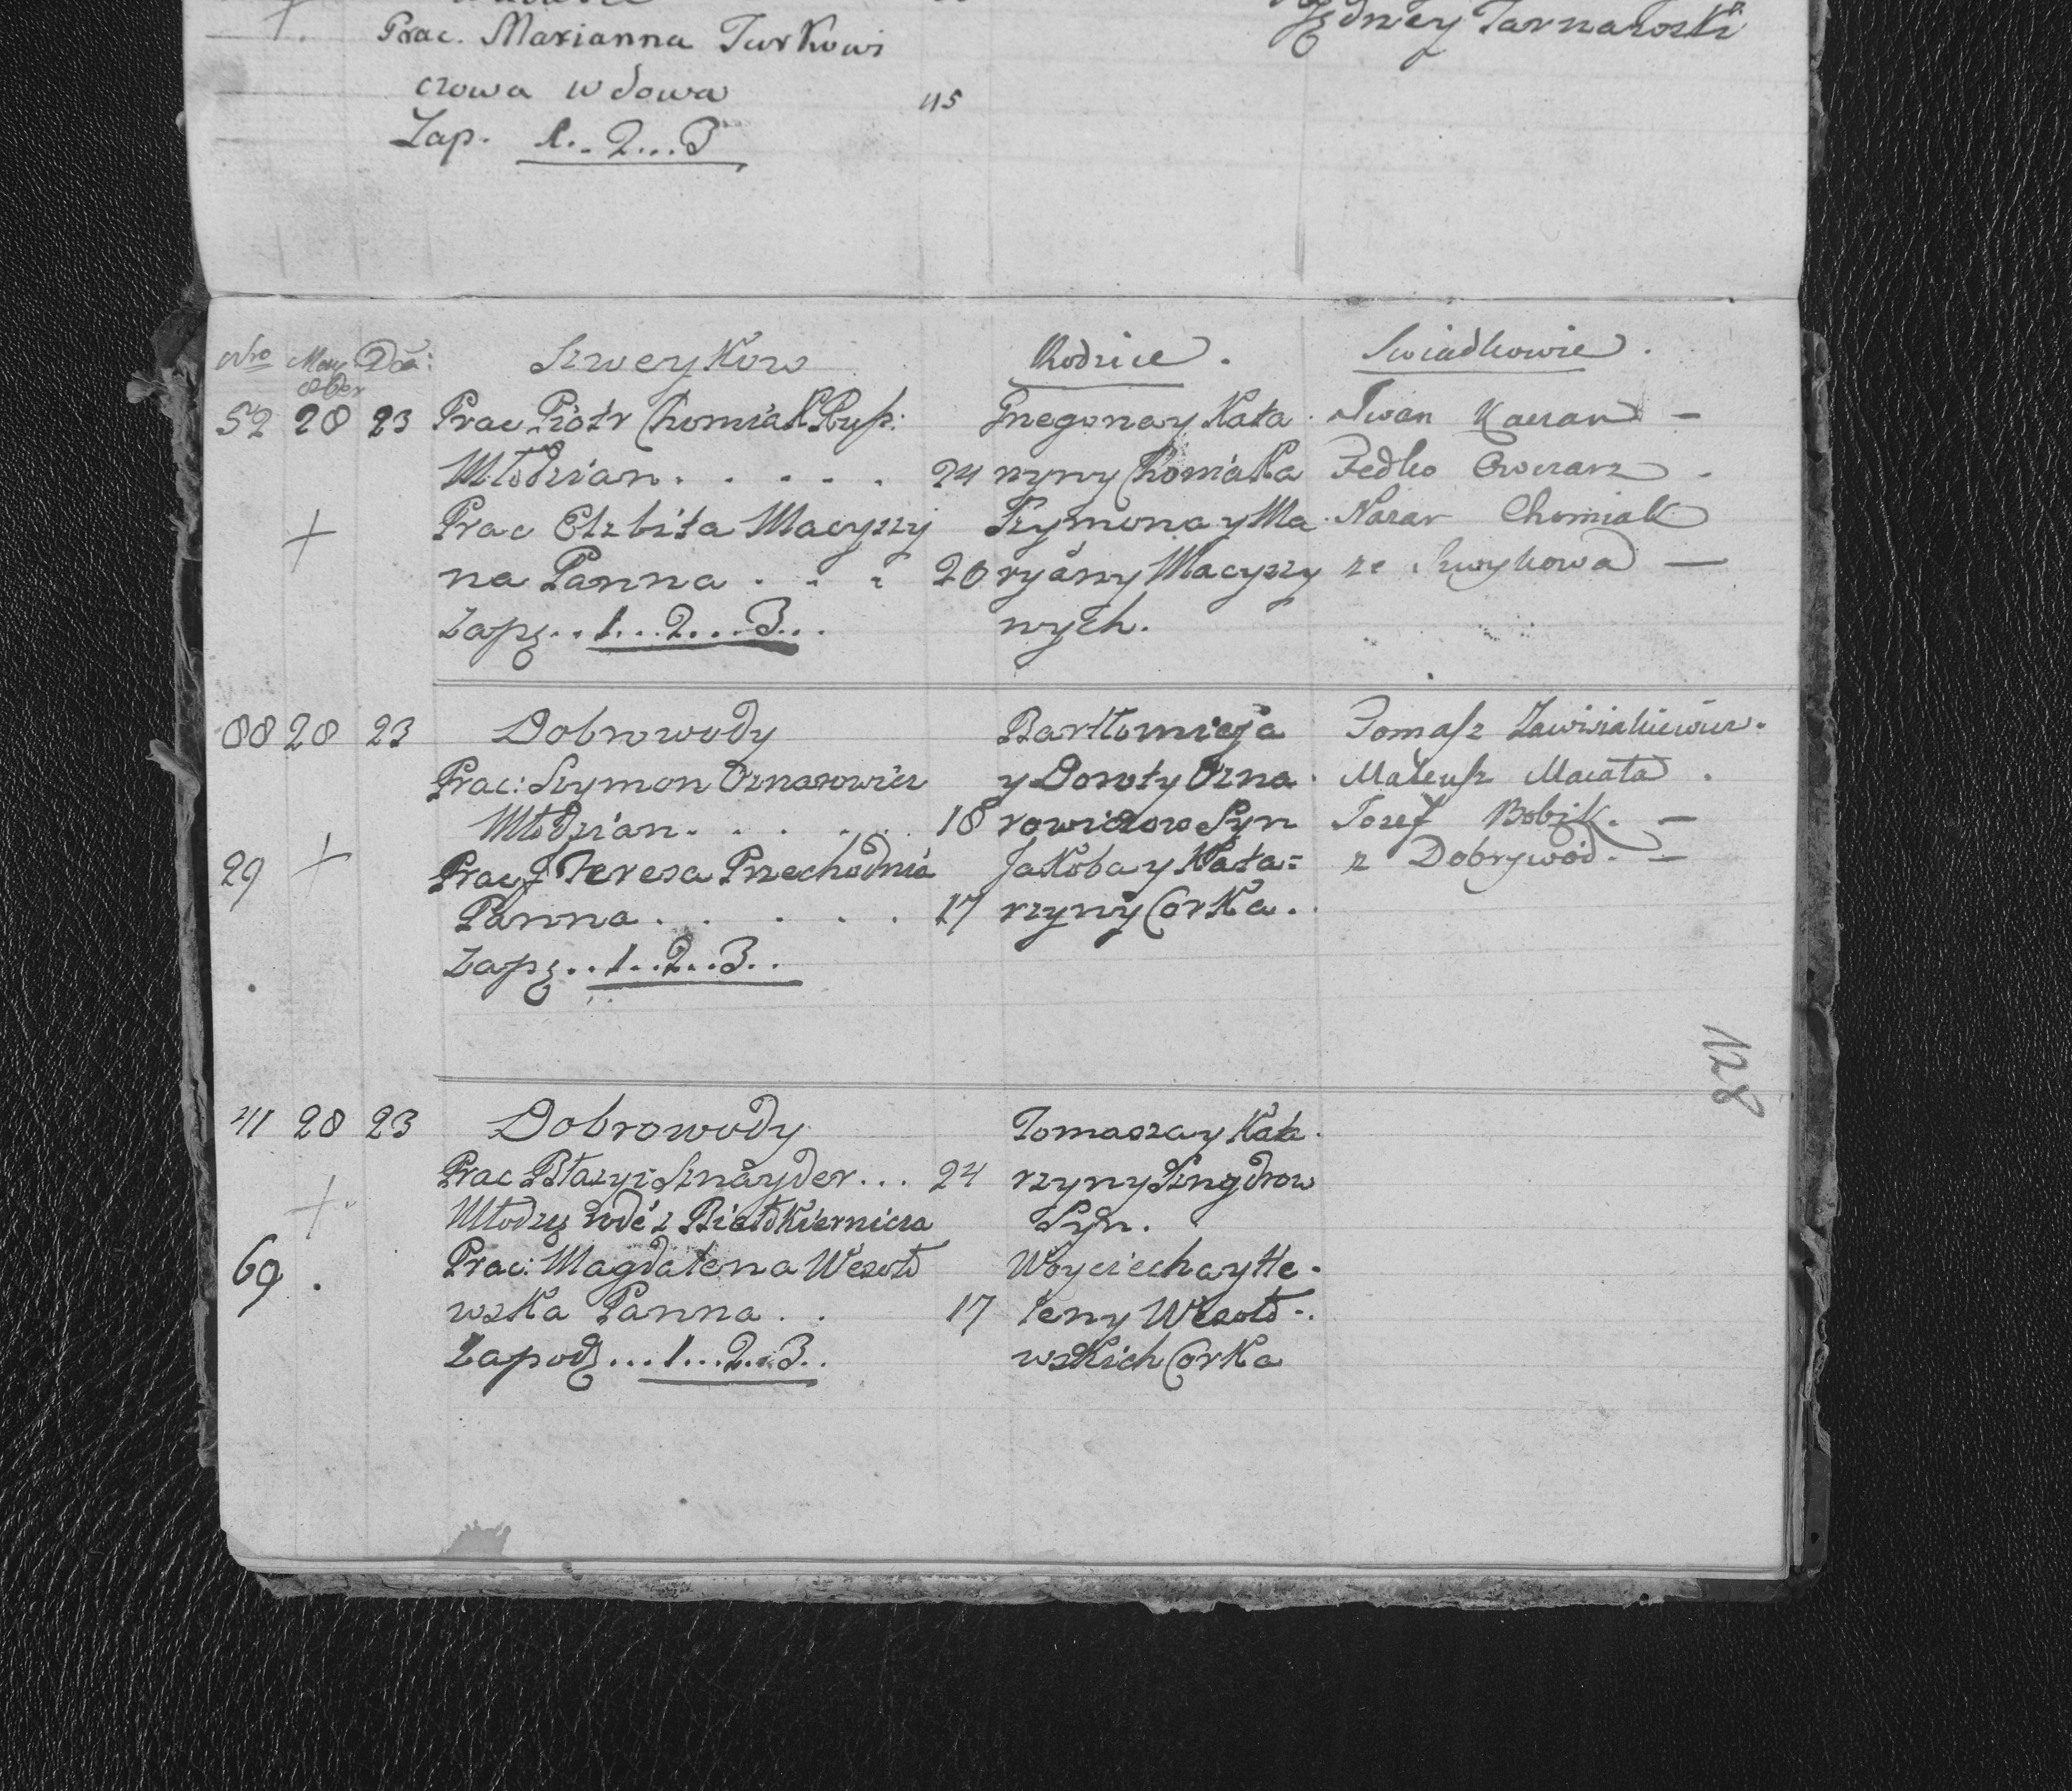 Prac. Marianna Turkowi
czowa wdowa 45
Zap. 1..2...3
Jędrzey Tarnawski
Nro May 8ber Do: Szweykow Rodzice. Swiadkowie.
52 28 23 Prac Piotr Chomiak Rusk: Gregorza y Kata Iwan Kaczan —
Młodzian. . . . . 24 rzyny Chomiaka Fedko Owczarz
Prac Elzbita Macyszy Szymona y Ma Nazar Chomiak
na Panna . . . 20 ryanny Macyszy ze Szwykowa —
Zapz...1...2...3... nych.
88 28 23 Dobrowody Bartłomieja Tomasz
Prac: Szymon Oznarowicz y Doroty Ozna Mateusz Macała
Młodzian. . . . . 18 rowiczow Syn Jozef Bobik. —
29 Prac: Teresa Przechodnia Jakoba y Kata= z Dobrywod. —
Panna . . . . . 17 rzyny Corka.
Zapz..1..2..3..
128
41 28 23 Dobrowody Tomasza y Kata
Prac Błazyi Sznayder... 24 rzyny Sznydrow
rode z Białokiernicza Syn.
69. Prac: Magdalena Wesoło Woyciecha y He
wska Panna . . 17 leny Wesoło
Zapodz...1...2...3.. wskich Corka